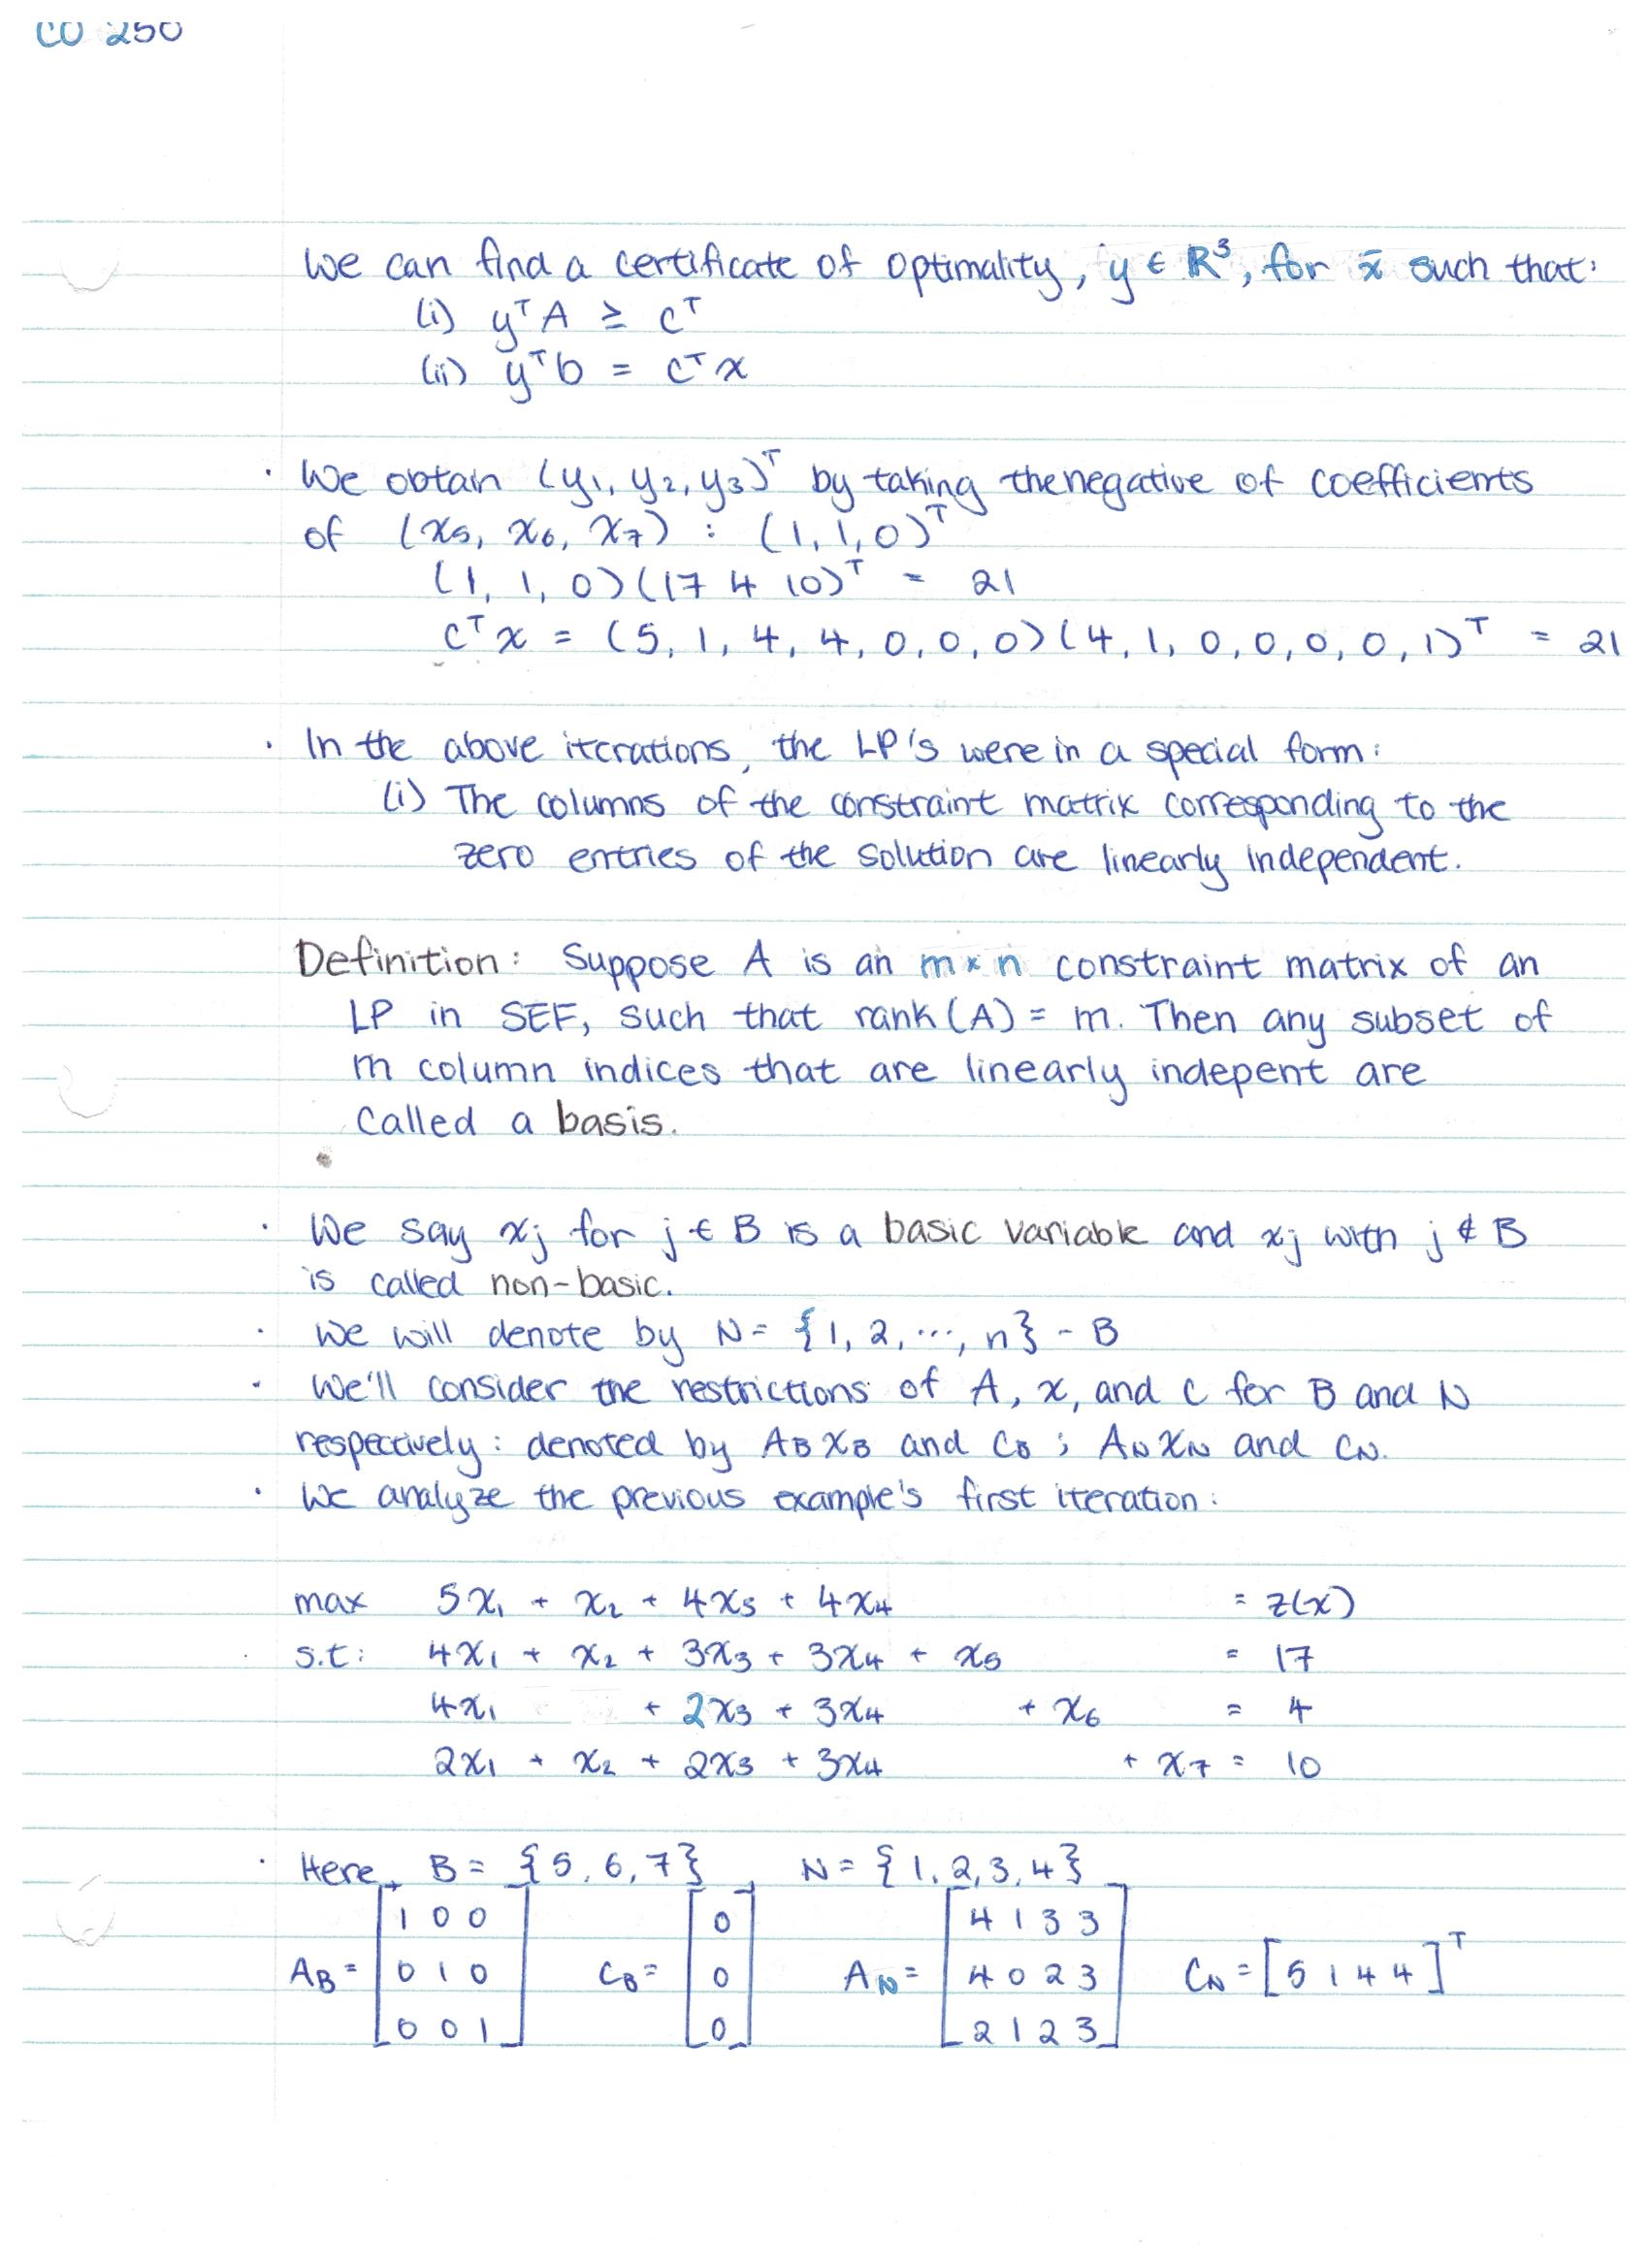 CO 250
We can find a certificate of optimality, y ∈ R³, for x̄ such that:
(i) yᵀA ≥ cᵀ
(ii) yᵀb = cᵀx
· We obtain (y₁, y₂, y₃)ᵀ by taking the negative of coefficients
of (x₅, x₆, x₇) : (1, 1, 0)ᵀ
(1, 1, 0)(17 4 10)ᵀ = 21
cᵀx = (5, 1, 4, 4, 0, 0, 0)(4, 1, 0, 0, 0, 0, 1)ᵀ = 21
· In the above iterations, the LP's were in a special form:
(i) The columns of the constraint matrix corresponding to the
zero entries of the solution are linearly independent.
Definition: Suppose A is an m×n constraint matrix of an
LP in SEF, such that rank(A) = m. Then any subset of
m column indices that are linearly indepent are
called a basis.
· We say xⱼ for j ∈ B is a basic variable and xⱼ with j ∉ B
is called non-basic.
· We will denote by N = {1, 2, ..., n} - B
· We'll consider the restrictions of A, x, and c for B and N
respectively: denoted by A_B x_B and C_B ; A_N x_N and C_N.
· We analyze the previous example's first iteration:
max 5x₁ + x₂ + 4x₃ + 4x₄ = z(x)
s.t: 4x₁ + x₂ + 3x₃ + 3x₄ + x₅ = 17
4x₁ + 2x₃ + 3x₄ + x₆ = 4
2x₁ + x₂ + 2x₃ + 3x₄ + x₇ = 10
· Here, B = {5, 6, 7} N = {1, 2, 3, 4}
1 0 0 0 4 1 3 3
A_B = 0 1 0 C_B = 0 A_N = 4 0 2 3 C_N = [5 1 4 4]ᵀ
0 0 1 0 2 1 2 3